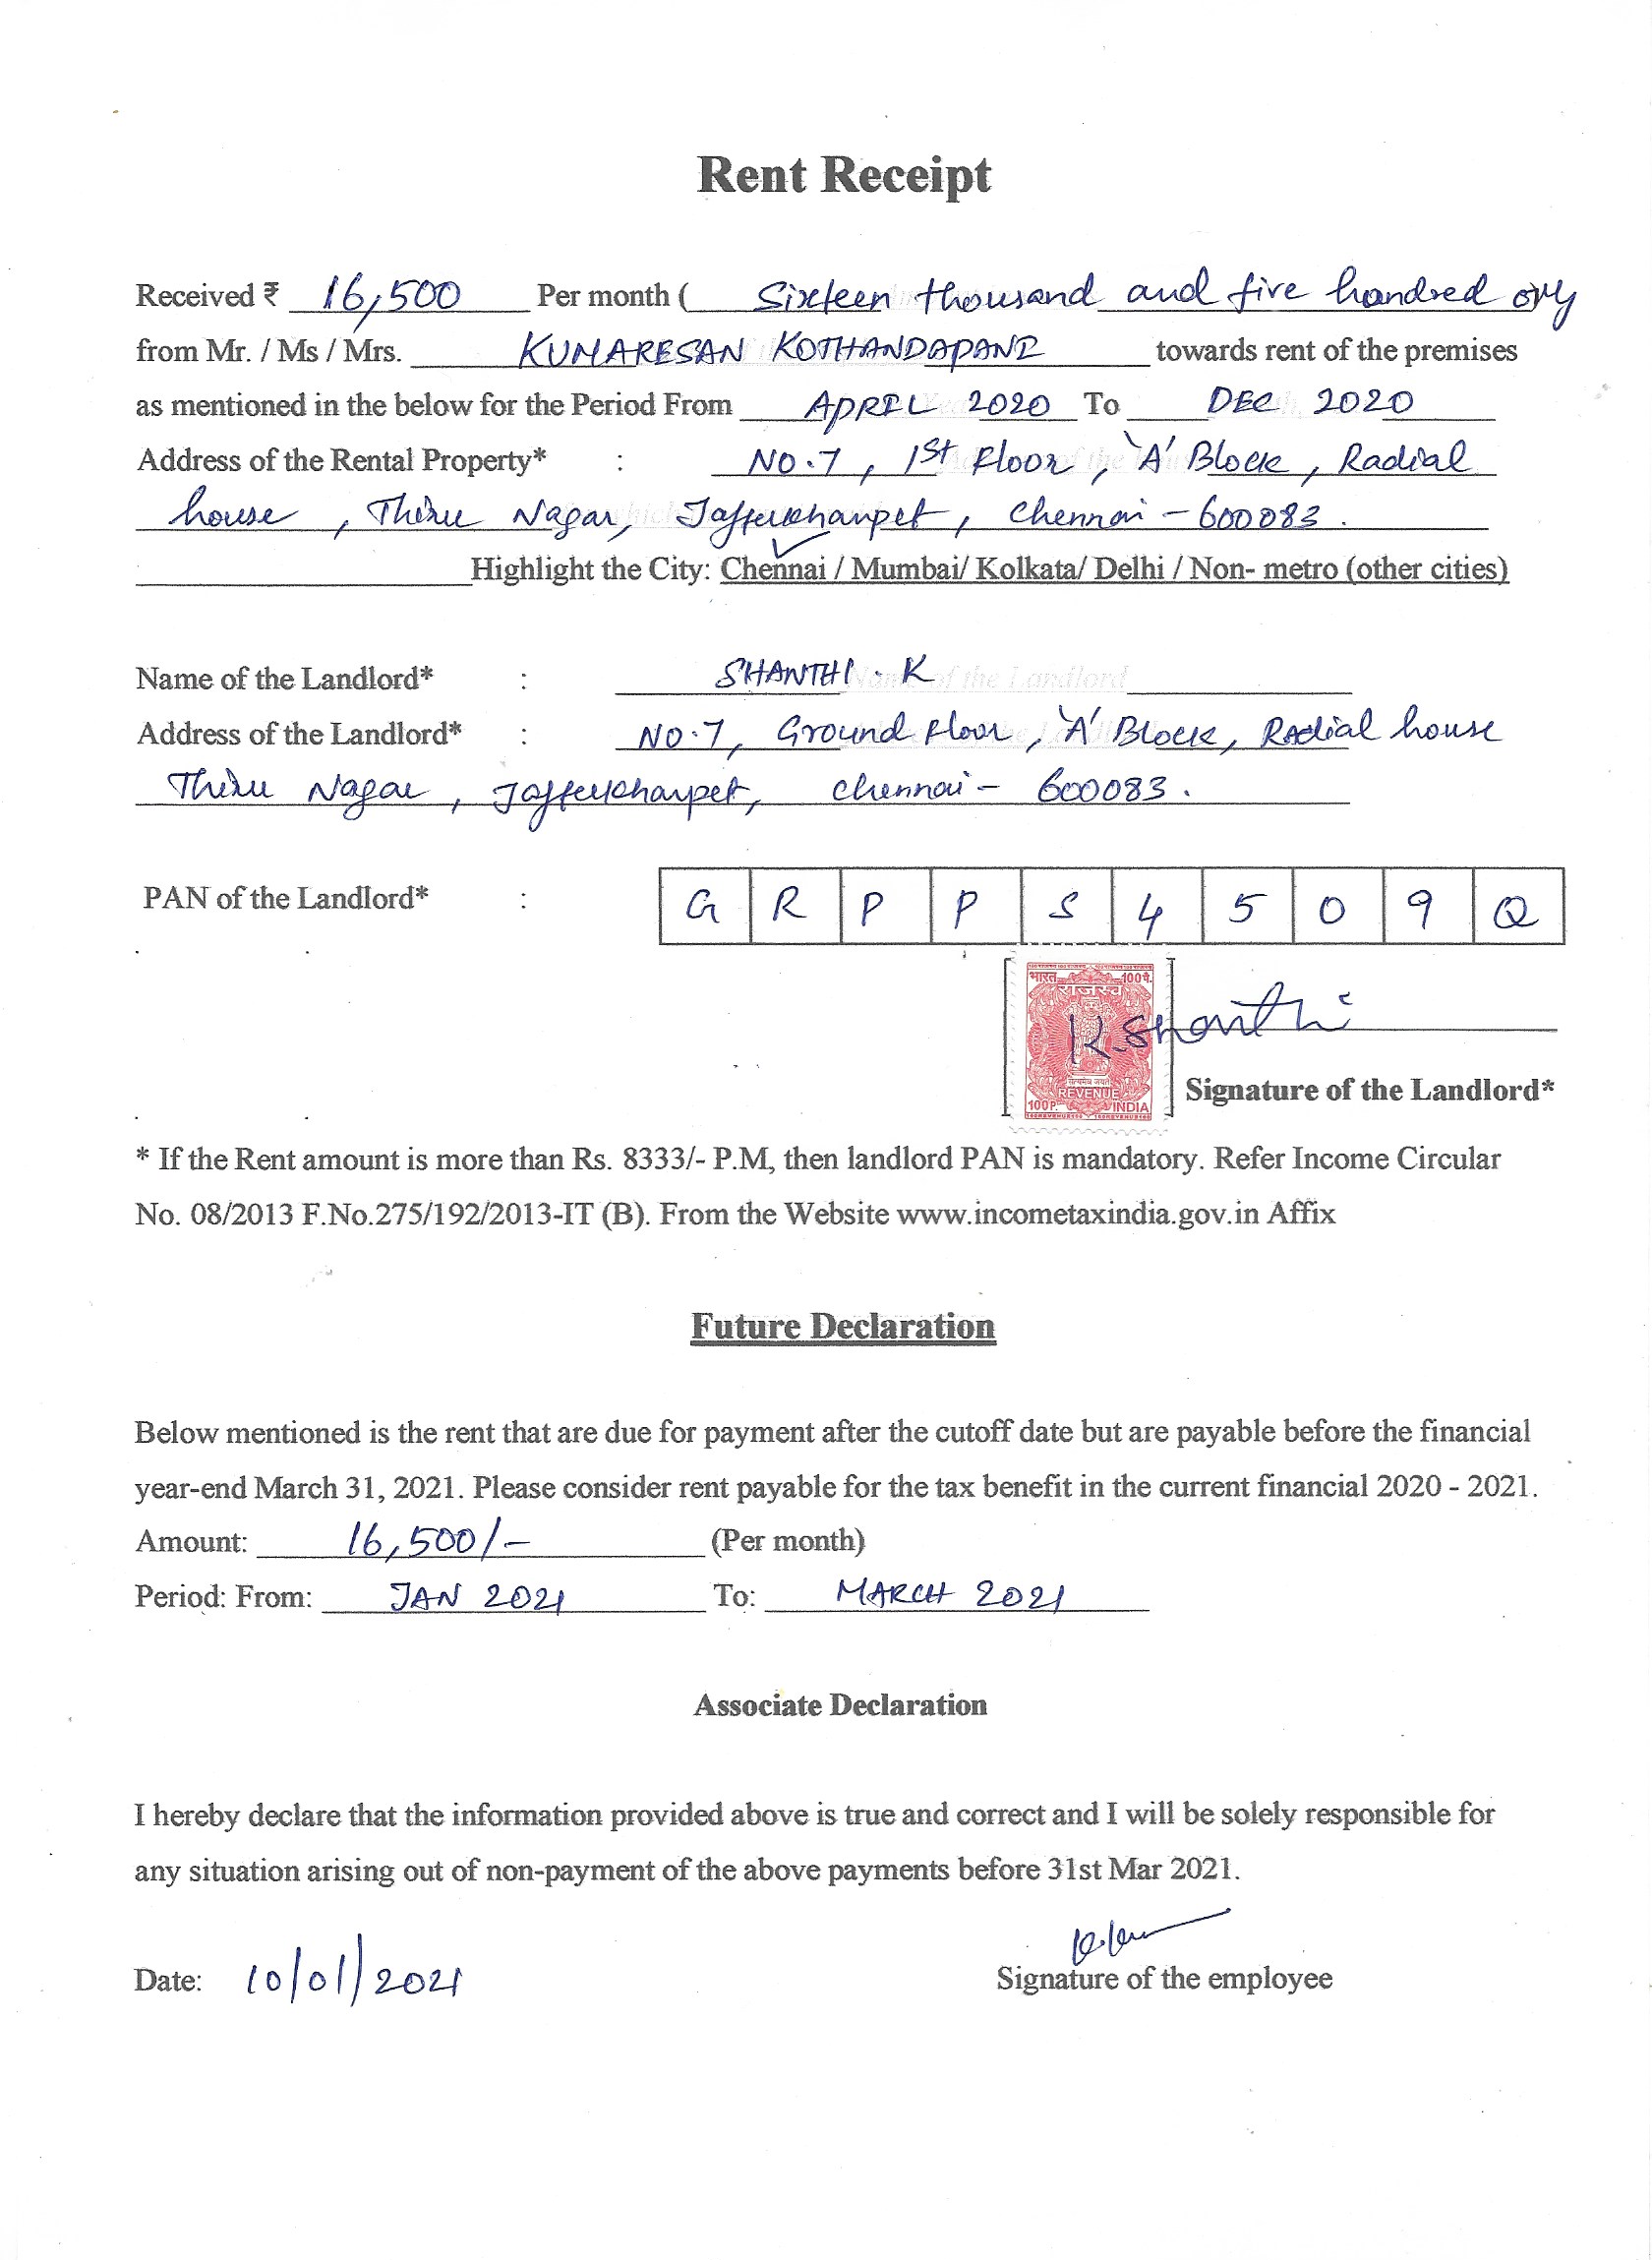 Rent Receipt
Received ₹ 16,500 Per month ( Sixteen thousand and five hundred only
from Mr. / Ms / Mrs. KUMARESAN KOTHANDAPANI towards rent of the premises
as mentioned in the below for the Period From APRIL 2020 To DEC 2020
Address of the Rental Property* : NO.7, 1st Floor, 'A' Block, Radial
house, Thiru Nagar, Jafferkhanpet, Chennai - 600083.
Highlight the City: Chennai / Mumbai/ Kolkata/ Delhi / Non- metro (other cities)
Name of the Landlord* : SHANTHI. K
Address of the Landlord* : NO.7, Ground Floor, 'A' Block, Radial house
Thiru Nagar, Jafferkhanpet, Chennai - 600083.
PAN of the Landlord* : G R P P S 4 5 0 9 Q
भारत 100 पै.
राजस्व
K. Shanthi
सत्यमेव जयते
REVENUE
100 P. INDIA
Signature of the Landlord*
* If the Rent amount is more than Rs. 8333/- P.M, then landlord PAN is mandatory. Refer Income Circular
No. 08/2013 F.No.275/192/2013-IT (B). From the Website www.incometaxindia.gov.in Affix
Future Declaration
Below mentioned is the rent that are due for payment after the cutoff date but are payable before the financial
year-end March 31, 2021. Please consider rent payable for the tax benefit in the current financial 2020 - 2021.
Amount: 16,500/- (Per month)
Period: From: JAN 2021 To: MARCH 2021
Associate Declaration
I hereby declare that the information provided above is true and correct and I will be solely responsible for
any situation arising out of non-payment of the above payments before 31st Mar 2021.
Date: 10/01/2021
Signature of the employee